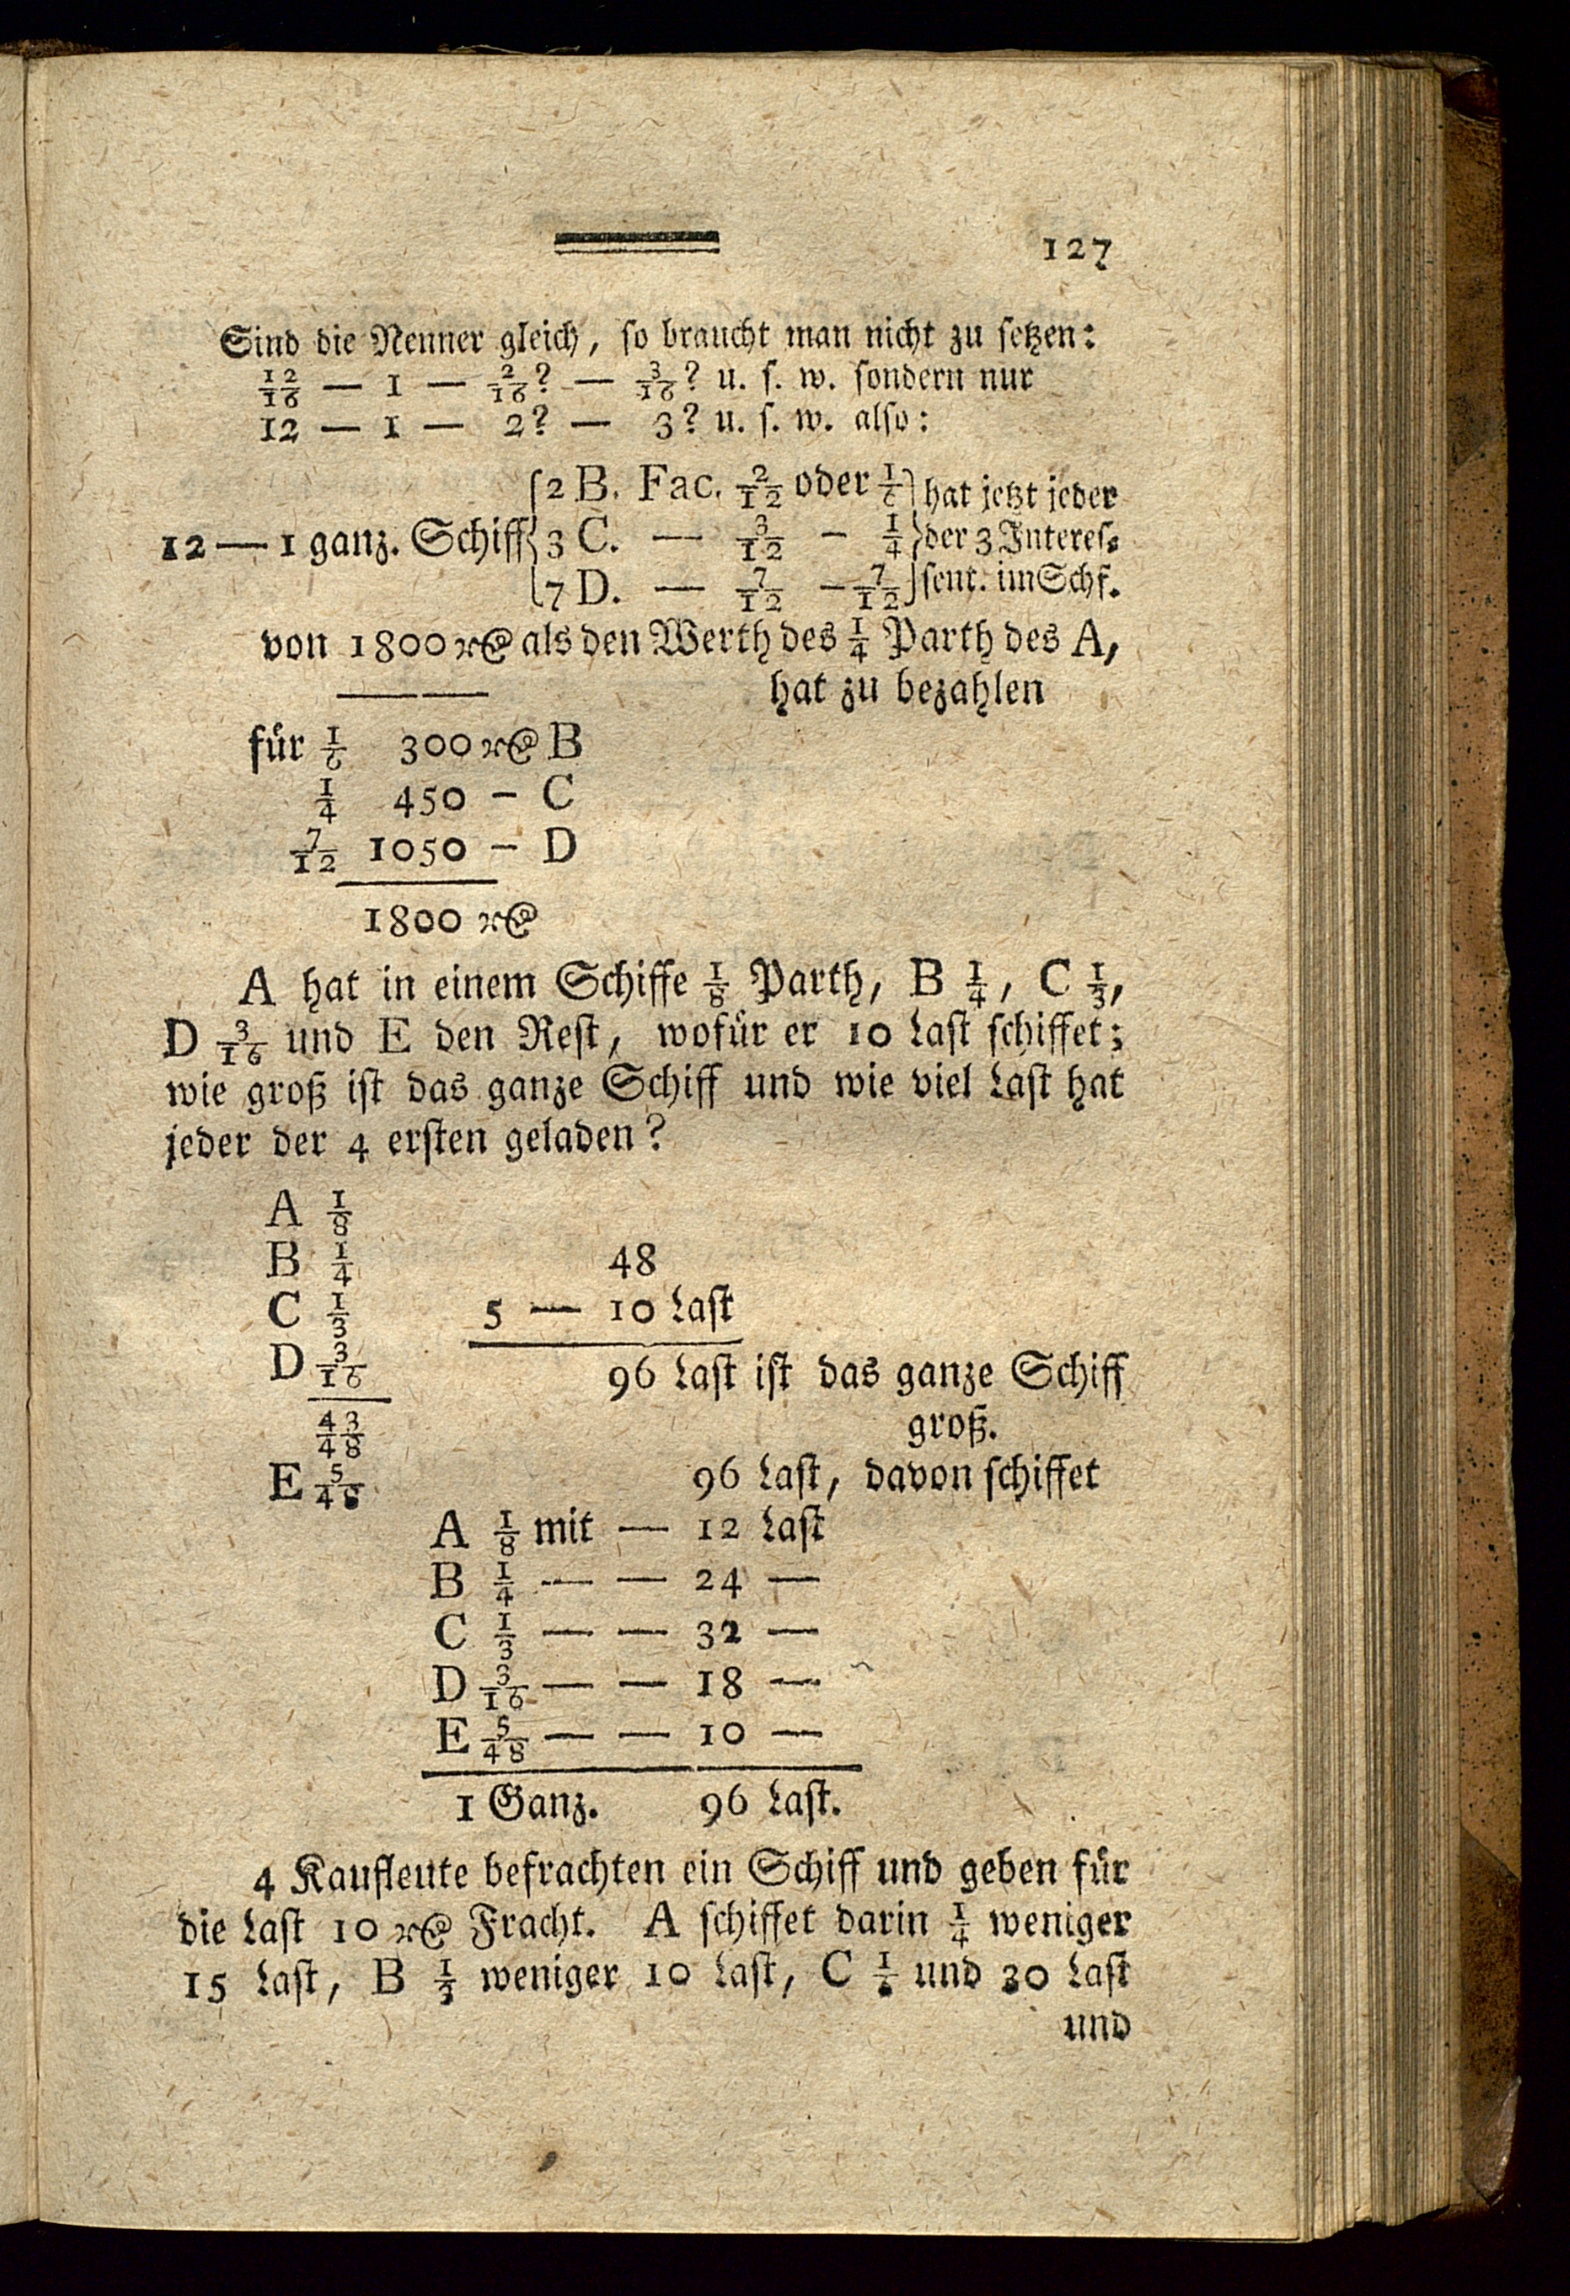 127
Sind die Nenner gleich, so braucht man nicht zu setzen:
12/16 — 1 — 2/16? — 3/16? u. s. w. sondern nur
12 — 1 — 2? — 3? u. s. w. also:
2 B. Fac. 2/12 oder 1/6 hat jetzt jeder
12 — 1 ganz. Schiff 3 C. — 3/12 – 1/4 der 3 Interes⸗
7 D. — 7/12 – 7/12 sent. im Schf.
von 1800 als den Werth des 1/4 Parth des A,
hat zu bezahlen
für 1/6 300 B
1/4 450 – C
7/12 1050 – D
1800
A hat in einem Schiffe 1/8 Parth, B 1/4, C 1/3,
D 3/16 und E den Rest, wofür er 10 Last schiffet;
wie groß ist das ganze Schiff und wie viel Last hat
jeder der 4 ersten geladen?
A 1/8
B 1/4 48
C 1/3 5 — 10 Last
D 3/16 96 Last ist das ganze Schiff
43/48 groß.
E 5/48 96 Last, davon schiffet
A 1/8 mit — 12 Last
B 1/4 — — 24 —
C 1/3 — — 32 —
D 3/16 — — 18 —
E 5/48 — — 10 —
1 Ganz. 96 Last.
4 Kaufleute befrachten ein Schiff und geben für
die Last 10 Fracht. A schiffet darin 1/4 weniger
15 Last, B 1/3 weniger 10 Last, C 1/6 und 30 Last
und